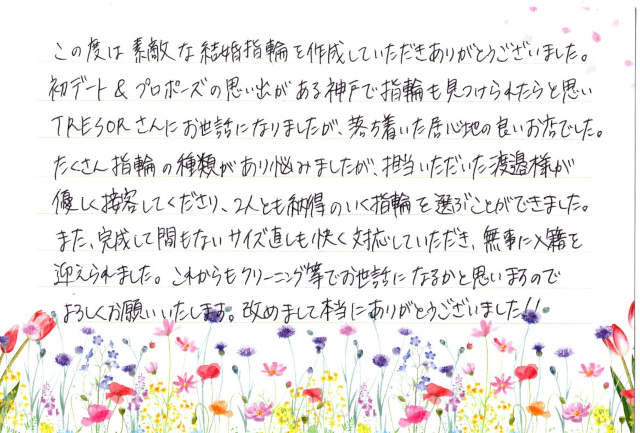 この度は素敵な結婚指輪を作成していただきありがとうございました。
初デート&プロポーズの思い出がある神戸で指輪も見つけられたらと思い
TRESORさんにお世話になりましたが、落ち着いた居心地の良いお店でした。
たくさん指輪の種類があり悩みましたが、担当いただいた渡邉様が
優しく接客してくださり、2人とも納得のいく指輪を選ぶことができました。
また、完成して間もないサイズ直しも快く対応していただき、無事に入籍を
迎えられました。これからもクリーニング等でお世話になるかと思いますので
よろしくお願いいたします。改めまして本当にありがとうございました!!